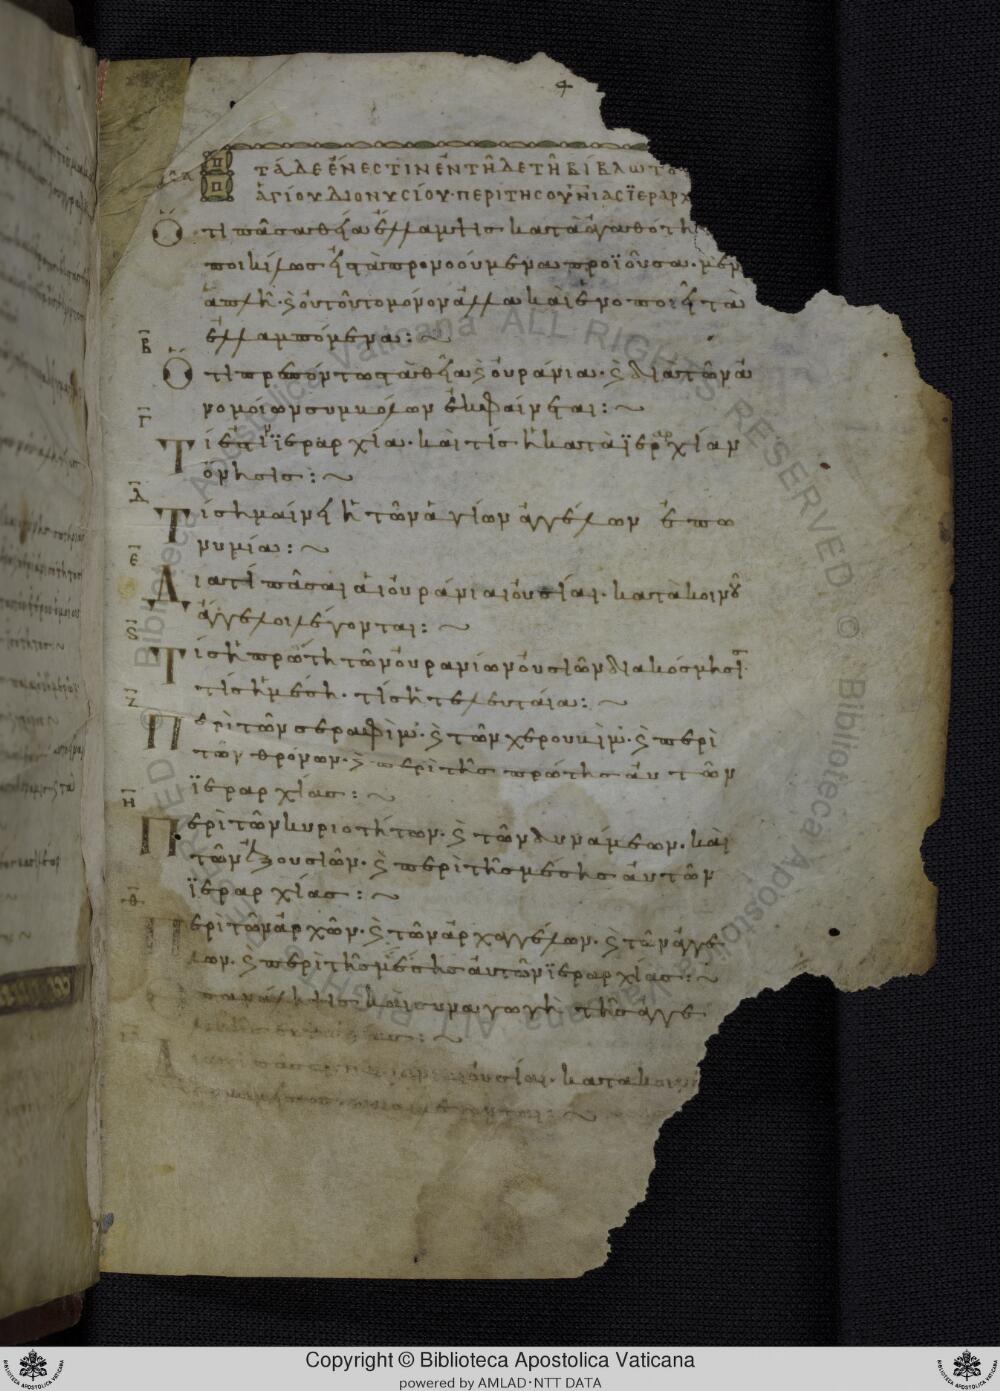 ΤΆΔΕ ἜΝΕΣΤΙΝ ἘΝ ΤΗ͂ΔΕ ΤΗ͂ ΒΊΒΛΩ ΤΟ
ἉΓΊΟΥ ΔΙΟΝΥΣΊΟΥ· ΠΕΡῚ ΤΗΣ ΟΥ̓ΝΊΑΣ ἹΕΡΑΡΧ
Ὅτι πᾶσα θεία ἔλλαμψις κατὰ ἀγαθότη
ποικίλως εἰς τὰ προνοούμενα προϊοῦσα· μέν
ἁπλῆ· καὶ οὐ τοῦτο μόνον ἀλλα καὶ ἑνοποιεῖ τὰ
ἐλλαμπόμενα: ~
β
Ὅτι πρεπόντως τὰ θεῖα καὶ οὐράνια· καὶ διὰ τῶν ἀ
νομοίων συμβόλων ἐκφαίνεται: ~
γ
Τί ἐστιν ἱεραρχία· καὶ τίς ἡ κατὰ ἱεραρχίαν
ὄνησις: ~
δ
Τί σημαίνει ἡ τῶν ἁγίων ἀγγέλων ἐπω
νυμία: ~
ε
Διατί πᾶσαι αἱ οὐράνιαι οὐσίαι· κατὰ κοινοῦ
ἄγγελοι λέγονται: ~
ς
Τίς ἡ πρώτη τῶν οὐρανίων οὐσιῶν διακόσμησις·
τίς ἡ μέση· τίς ἡ τελευταία: ~
ζ
Περὶ τῶν σεραφὶμ· καὶ τῶν χερουβὶμ· καὶ περὶ
τῶν θρόνων· καὶ περὶ τῆς πρώτης αὐτῶν
ἱεραρχίας: ~
η
Περὶ τῶν κυριοτήτων· καὶ τῶν δυνάμεων· καὶ
τῶν ἐξουσιῶν· καὶ περὶ τῆς μέσης αὐτῶν
ἱεραρχίας: ~
θ
Περὶ τῶν ἀρχῶν· καὶ τῶν ἀρχαγγέλων· καὶ τῶν ἀγγέ
λων· καὶ περὶ τῆς μέσης αὐτῶν ἱεραρχίας: ~
πανάληψις καὶ συναγωγὴ τῆς ἀγγε
οὐσίαι· κατὰ κοιν
Copyright © Biblioteca Apostolica Vaticana
powered by AMLAD·NTT DATA